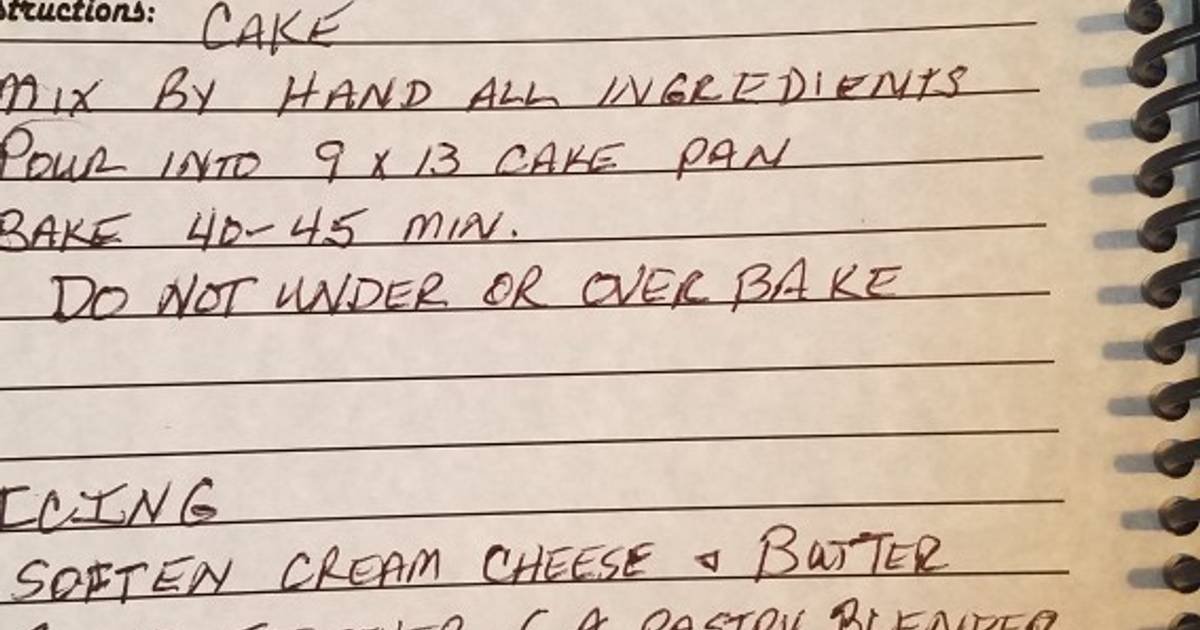 structions: CAKE
MIX BY HAND ALL INGREDIENTS
POUR INTO 9 X 13 CAKE PAN
BAKE 40-45 MIN.
DO NOT UNDER OR OVER BAKE
ICING
SOFTEN CREAM CHEESE & BUTTER
A PASTRY BLENDER